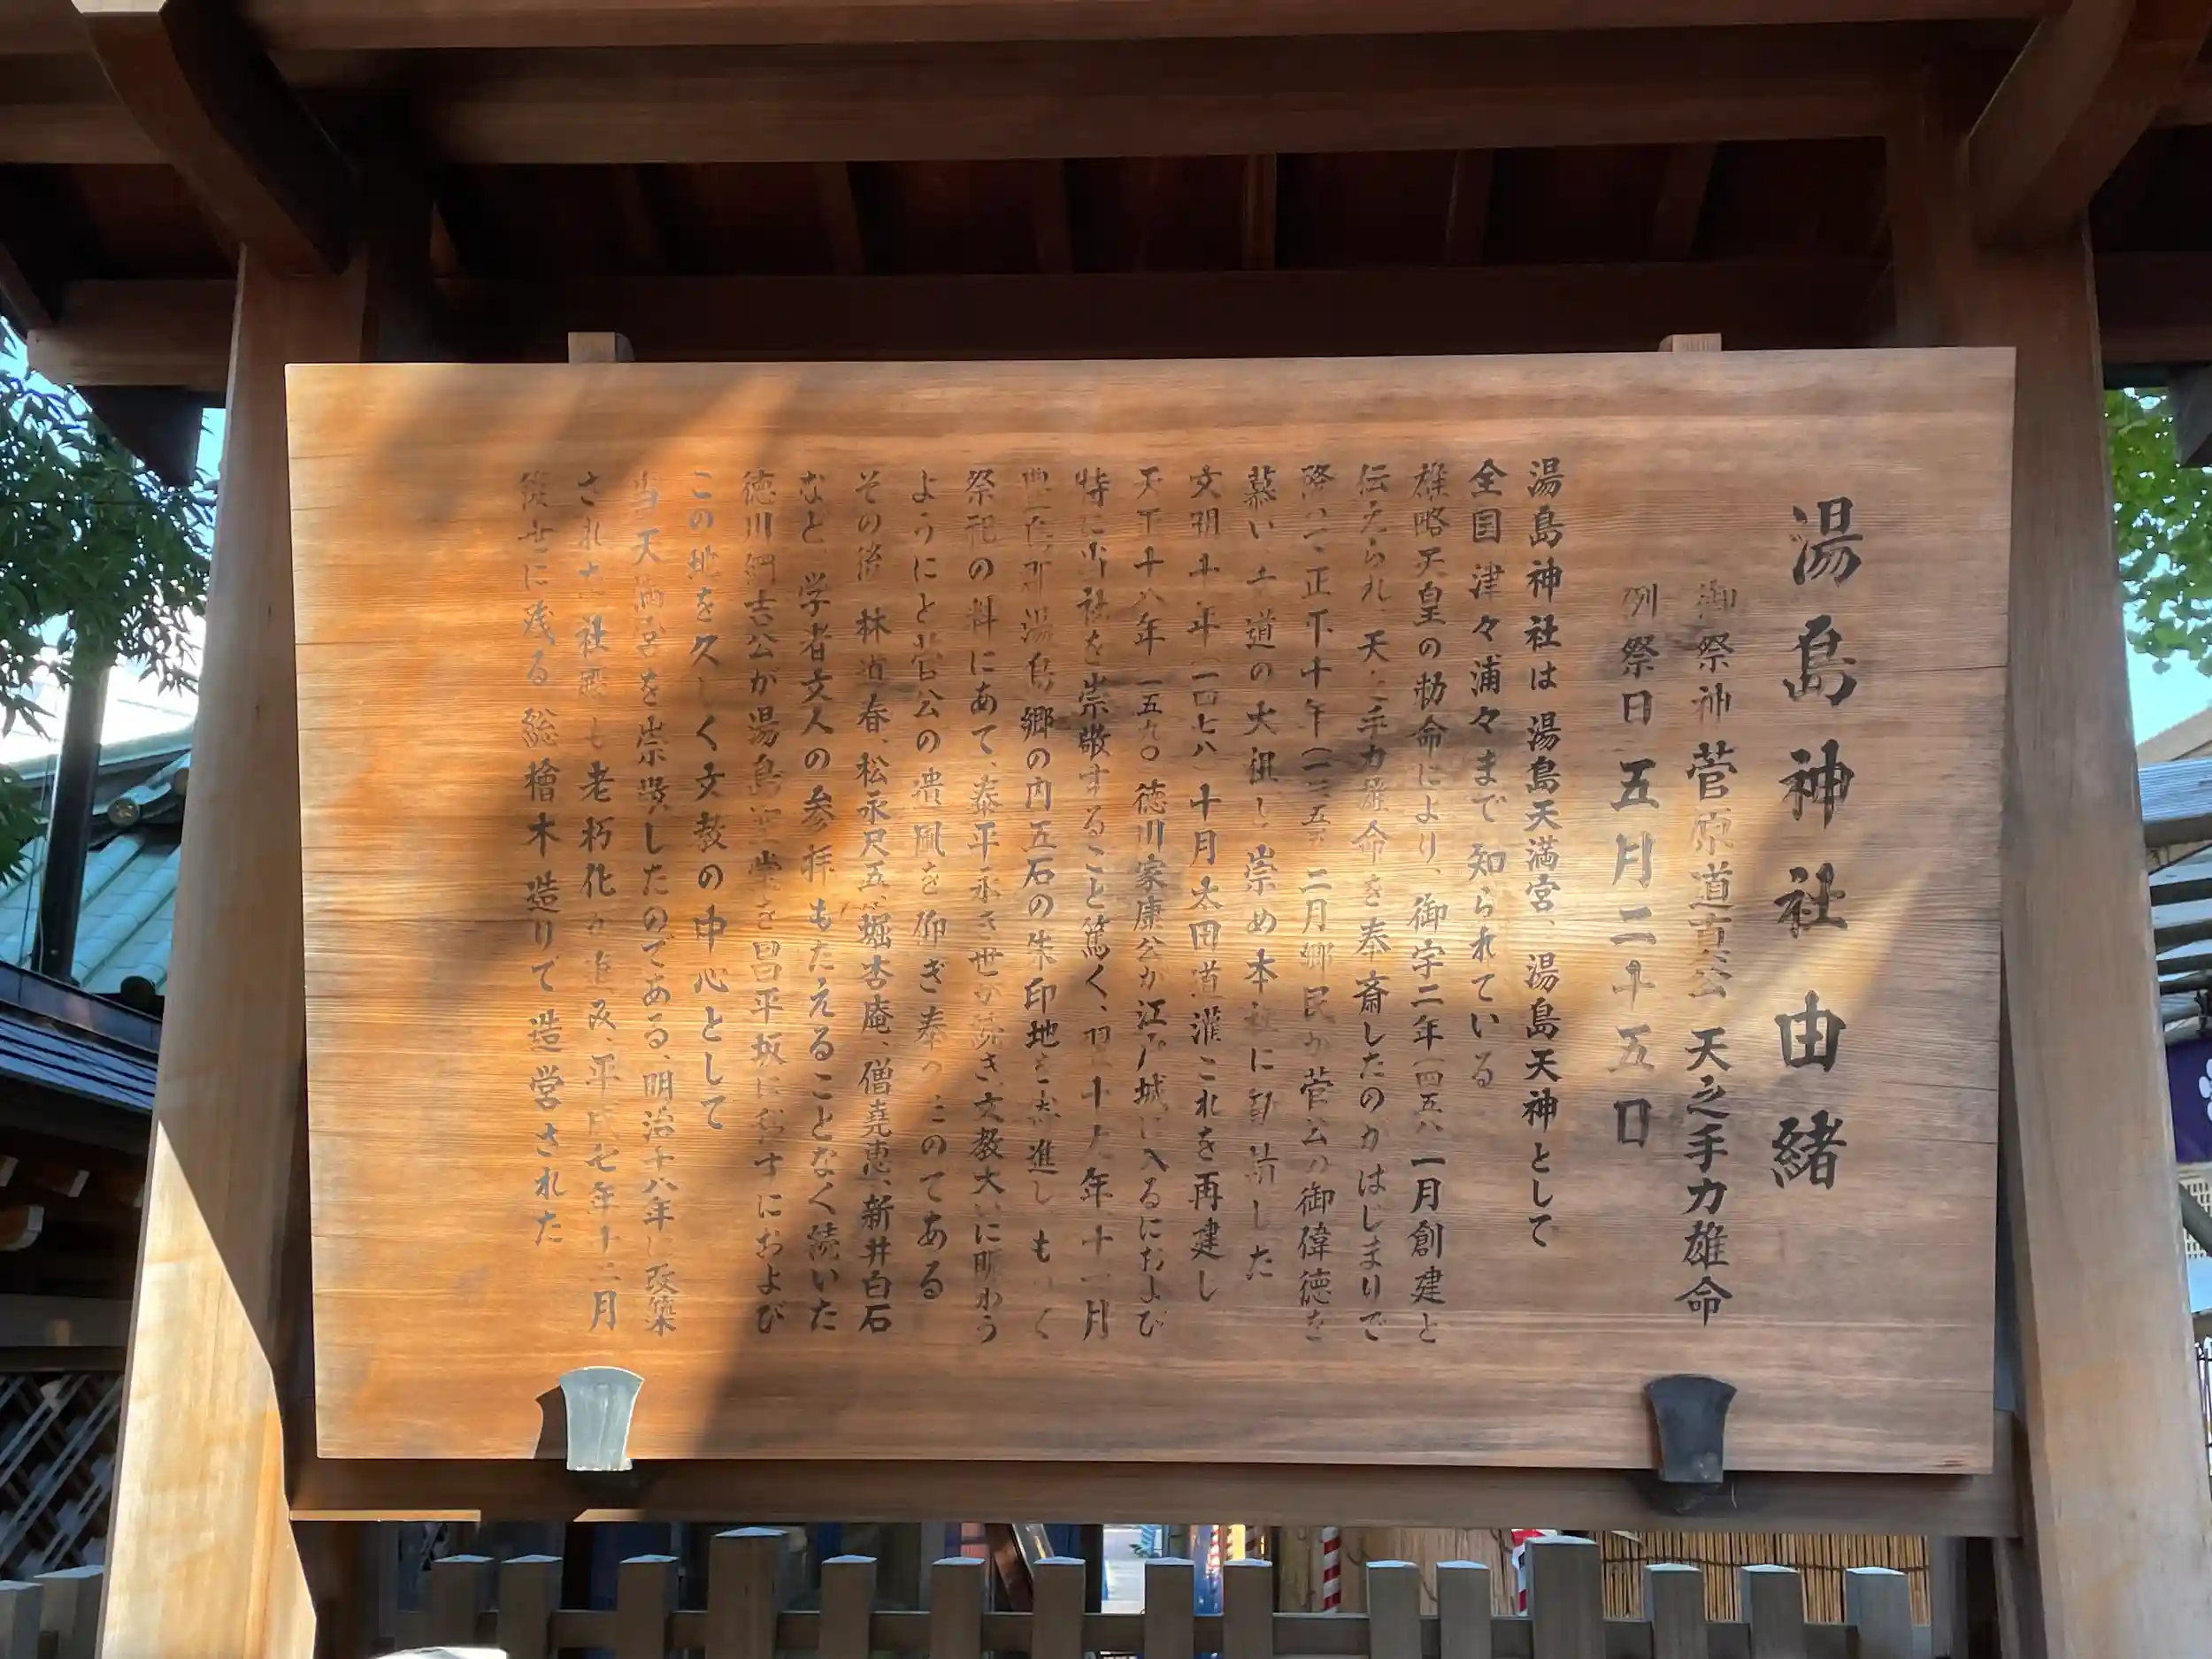 湯島神社由緒
御祭神 菅原道真公 天之手力雄命
例祭日 五月二十五日
湯島神社は 湯島天満宮、湯島天神として
全国津々浦々まで知られている
雄略天皇の勅命により、御宇二年(四五八)一月創建と
伝えられ、天之手力雄命を奉斎したのがはじまりで
降って正平十年(一三五五)二月郷民が菅公の御偉徳を
慕い 文道の大祖と崇め本社に勧請した
文明十年(一四七八)十月太田道灌これを再建し
天正十八年(一五九〇)徳川家康公が江戸城に入るにおよび
特に当社を崇敬すること篤く、翌十九年十一月
湯島郷の内五石の朱印地を寄進し もって
祭祀の料にあて、泰平永き世が続き、文教大いに賑わう
ようにと菅公の遺風を仰ぎ奉ったのである
その後 林道春、松永尺五、堀杏庵、僧堯恵、新井白石
など 学者文人の参拝もたえることなく続いた
徳川綱吉公が湯島聖堂を昌平坂に移すにおよび
この地を久しく文教の中心として
当天満宮を崇敬したのである、明治十八年に改築
された社殿も老朽化が進み、平成七年十二月
後世に残る 総檜木造りで造営された